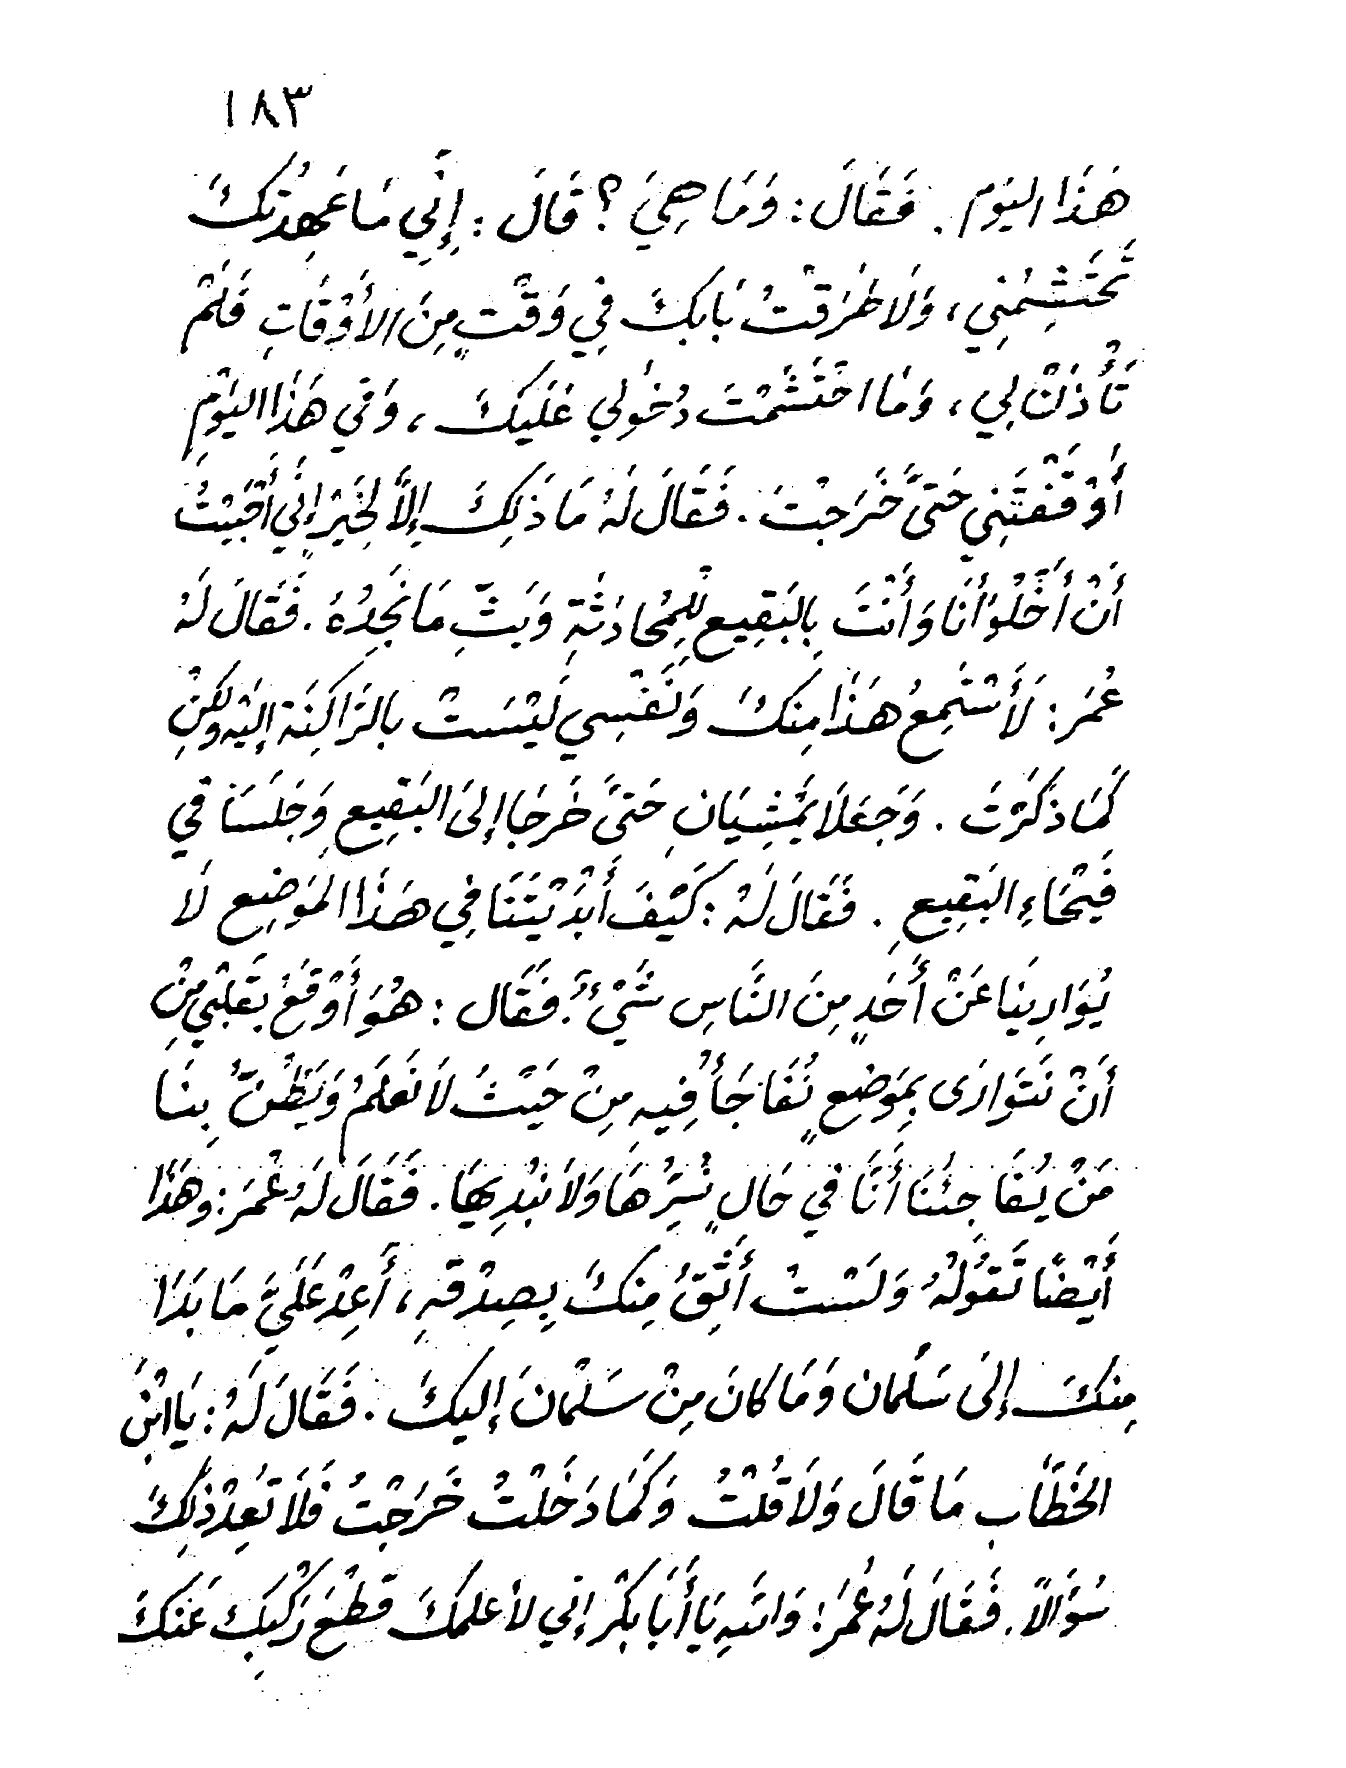 ١٨٣
هَذَا اليَوْم . فَقَالَ : وَمَا هِيَ ؟ قَالَ : إِنِّي مَا عَهِدْتُكَ
تَحْتَشِمُنِي ، وَلَا طَرَقْتُ بَابَكَ فِي وَقْتٍ مِنَ الأَوْقَاتِ فَلَمْ
تَأْذَنْ لِي ، وَمَا احْتَشَمْتَ دُخُولِي عَلَيكَ ، وَفي هَذَا اليَوْمِ
أَوْقَفْتَنِي حَتَّى خَرَجْتَ . فَقَالَ لَهُ مَا ذَلِكَ إِلاَّ لِخَيْرٍ إِنِّي أَحْبَبْتُ
أَنْ أَخْلُوَ أَنَا وَأَنْتَ بِالبَقِيعِ لِلْمُحَادَثَةِ وَبَثِّ مَا نَجِدُهُ . فَقَالَ لَهُ
عُمَر : لَأَسْتَمِعُ هَذَا مِنكَ وَنَفْسِي لَيْسَتْ بالرَّاكِنَة إِلَيْهِ وَلَكِنْ
كَمَا ذَكَرْتَ . وَجَعَلَا يَمْشِيَانِ حَتَّى خَرجَا إلىَ البَقِيعِ وَجَلَسَا في
فَيْحَاءِ البَقِيعِ . فَقَالَ لَهُ : كَيْفَ أَبْدَيْتَنَا فِي هَذَا المَوَضِع لَا
يُوَارِينَا عَنْ أَحَدٍ مِنَ النَّاسِ شَيْءٌ . فَقَال : هُوَ أَوْقَعُ بِقَلْبِي مِنْ
أَنْ نَتَوَارَى بِمَوَضعٍ نُفَاجَأُ فِيهِ مِنْ حَيْثُ لاَ نَعْلَمُ وَيَظُنُّ بِنَا
مَنْ يُفَاجِئُنَا أَنَّنَا في حَالٍ نُسِرُّهَا وَلاَ نُبْدِيهَا . فَقَالَ لَهُ عُمَرَ : وهَذَا
أَيْضًا تَقُولُهُ وَلَسْتُ أَثِقُ مِنكَ بِصِدْقهِ ، أَعِدْ عَلَيَّ مَا بَدَا
مِنكَ إِلىَ سَلْمان وَمَا كانَ مِنْ سَلْمَانَ إليكَ . فَقَالَ لَهُ : يَا ابْنَ
الخَطَّابِ مَا قَالَ وَلَا قُلْتُ وَكَمَا دَخَلْتُ خَرَجْتُ فَلَا تُعِدْ ذَلِكَ
سُؤَالاً . فَقَالَ لَهُ عُمَرُ : وَاللهِ يَا أَبَا بَكْر إنّي لأعلمكَ قَطْعَ رَكْبِكَ عَنكَ